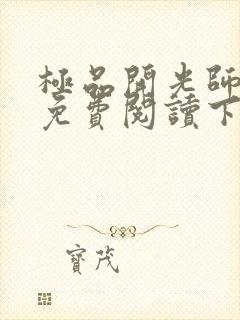 極品開光師
免費閱讀下
寶茂